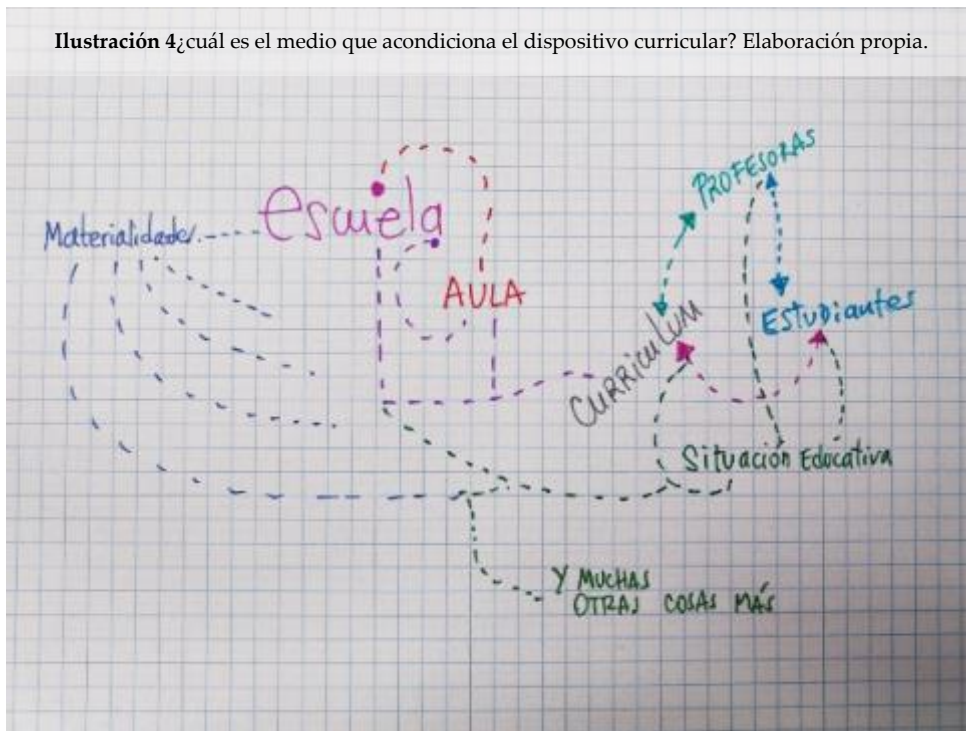 Ilustración 4¿cuál es el medio que acondiciona el dispositivo curricular? Elaboración propia.
PROFESORAS
escuela
Materialidades
AULA
EStuDiantes
CURRiCuLUM
Situación Educativa
Y MUCHAS
OTRAS COSAS MÁS